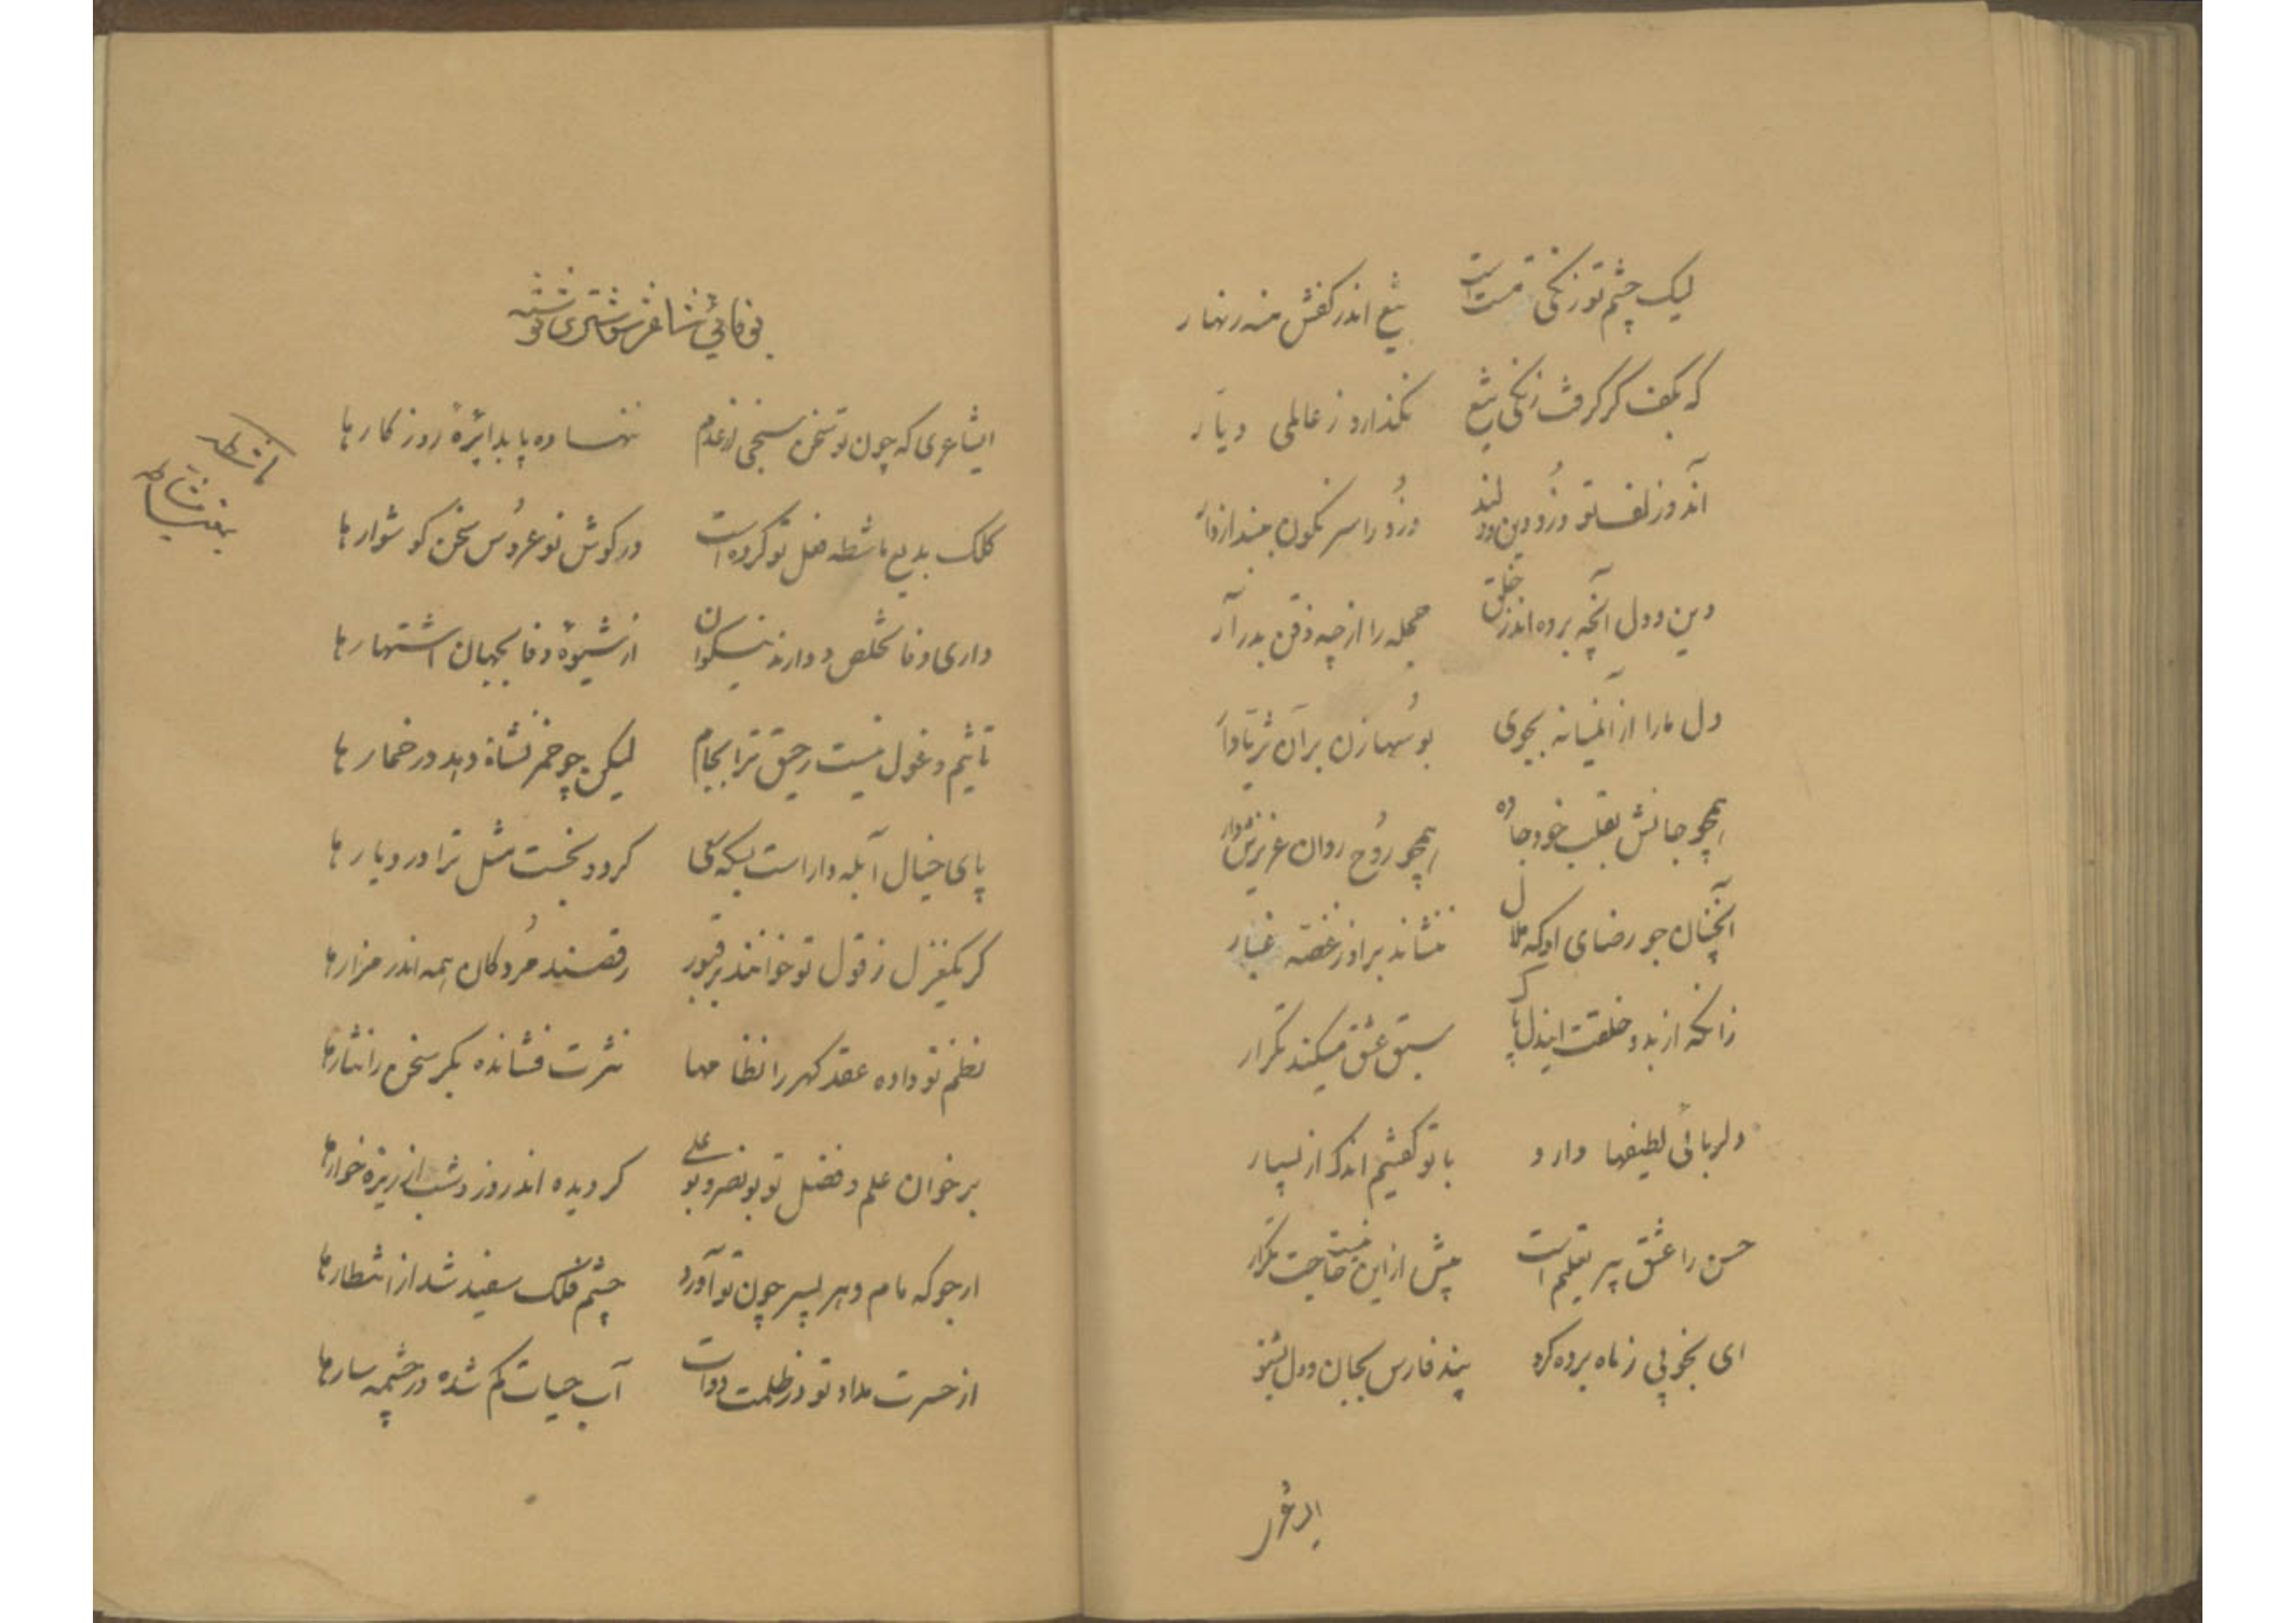 لیک چشم تو زنگی مست است تیغ اندر کفش منه زنهار
که بکف گر گرفت زنگی تیغ نگذارد ز عالمی دیار
آندو زلف تو دزد دین و دلند دزد را سرنگون
دین و دل آنچه برده اند ز خلق جمله را از چه ذقن بدر آر
دل ما را از آنمیانه بجوی بوسها زن بر آن
همچو جانش بقلب خود جا ده همچو روح روان عزیزش دار
آنچنان جو رضای او که ملال ننشاند بر او ز غصه غبار
زانکه از بدو خلقت ایندل پاک سبق عشق میکند تکرار
دلربائی لطیفها دارد با تو گفتیم اندک از بسیار
حسن را عشق پیر تعلیم است پیش از این نیست حاجت تکرار
ای بخوبی ز ماه برده گرو پند فارس بجان و دل بشنو
بوفائی شاعر شوشتری نوشته
ایشاعری که چون تو سخن سنجی از عدم ننهاده پا بدایرهٔ روزگارها
کلک بدیع ماشطه فضل تو کرده است در گوش نو عروس سخن گوشوارها
ماشطه
داری وفا تخلص و دارند نیکوان از شیوهٔ وفا بجهان اشتهارها
تاثیم و غول نیست رحیق ترا بجام لیکن چو خمر نشاة دهد در خمارها
پای خیال آبله دار است بسکه کرد و نجست مثل ترا در دیارها
گر یکغزل ز قول تو خوانند بر قبور رقصند مردگان همه اندر مزارها
نظم تو داده عقد گهر را نظامها نثرت فشانده بکر سخن را نثارها
بر خوان علم و فضل تو بونصر و بوعلی گردیده اند روز و شب از ریزه خوارها
ارجو که مام دهر پسر چون تو آورد چشم فلک سفید شد از انتظارها
از حسرت مداد تو در ظلمت دوات آب حیات گم شده در چشمه سارها